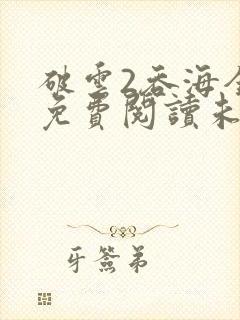 破雲2吞海全
免費閱讀未
牙簽弟